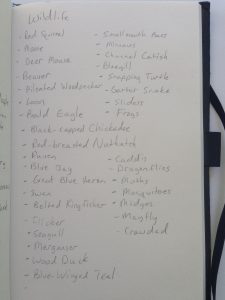 Wildlife
- Red Squirrel
- Moose
- Deer Mouse
- Beaver
- Pileated Woodpecker
- Loon
- Bald Eagle
- Black-capped Chickadee
- Red-breasted Nuthatch
- Raven
- Blue Jay
- Great Blue Heron
- Swan
- Belted Kingfisher
- Flicker
- Seagull
- Merganser
- Wood Duck
- Blue-Winged Teal
- Smallmouth Bass
- Minnows
- Channel Catfish
- Bluegill
- Snapping Turtle
- Garter Snake
- Sliders
- Frogs
- Caddis
- Dragonflies
- Mosquitoes
- Midges
- Mayfly
- Crawdad